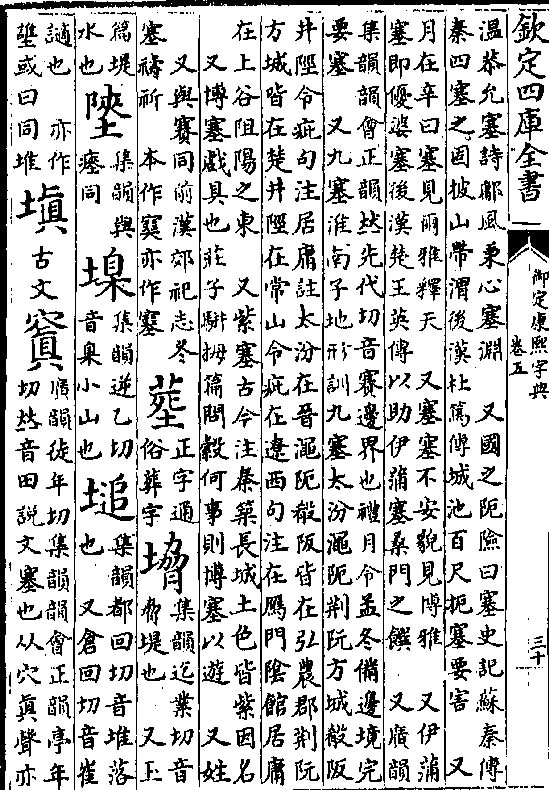 欽定四庫全書
御定康熙字典
卷五
三十
温恭允塞詩鄘風秉心塞淵　又國之阨險曰塞史記蘇秦傳
秦四塞之國披山帶渭後漢杜篤傳城池百尺扼塞要害　又
月在辛曰塞見爾雅釋天　又塞塞不安貌見博雅　又伊蒲
塞即優婆塞後漢楚王英傳以助伊蒲塞桑門之饌　又廣韻
集韻韻會正韻𠀤先代切音賽邊界也禮月令孟冬備邊境完
要塞　又九塞淮南子地形訓九塞太汾澠阨荆阮方城殽阪
井陘令疵句注居庸註太汾在晉澠阨殽阪皆在弘農郡荆阮
方城皆在楚井陘在常山令疵在遼西句注在鴈門隂館居庸
在上谷阻陽之東　又紫塞古今注秦築長城土色皆紫因名
又博塞戲具也莊子駢拇篇問穀何事則博塞以遊　又姓
又與賽同前漢郊祀志冬
塞禱祈　本作𡫳亦作
塟
正字通
俗葬字
集韻迄業切音
脅堤也　又玉
篇堤
水也
集韻與
瘞同
㙞
集韻逆乙切
音臬小山也
塠
集韻都回切音堆落
也　又倉回切音崔
也　亦作
或曰同堆
塡
古文
窴
廣韻徒年切集韻韻會正韻亭年
切𠀤音田說文塞也从穴眞聲亦